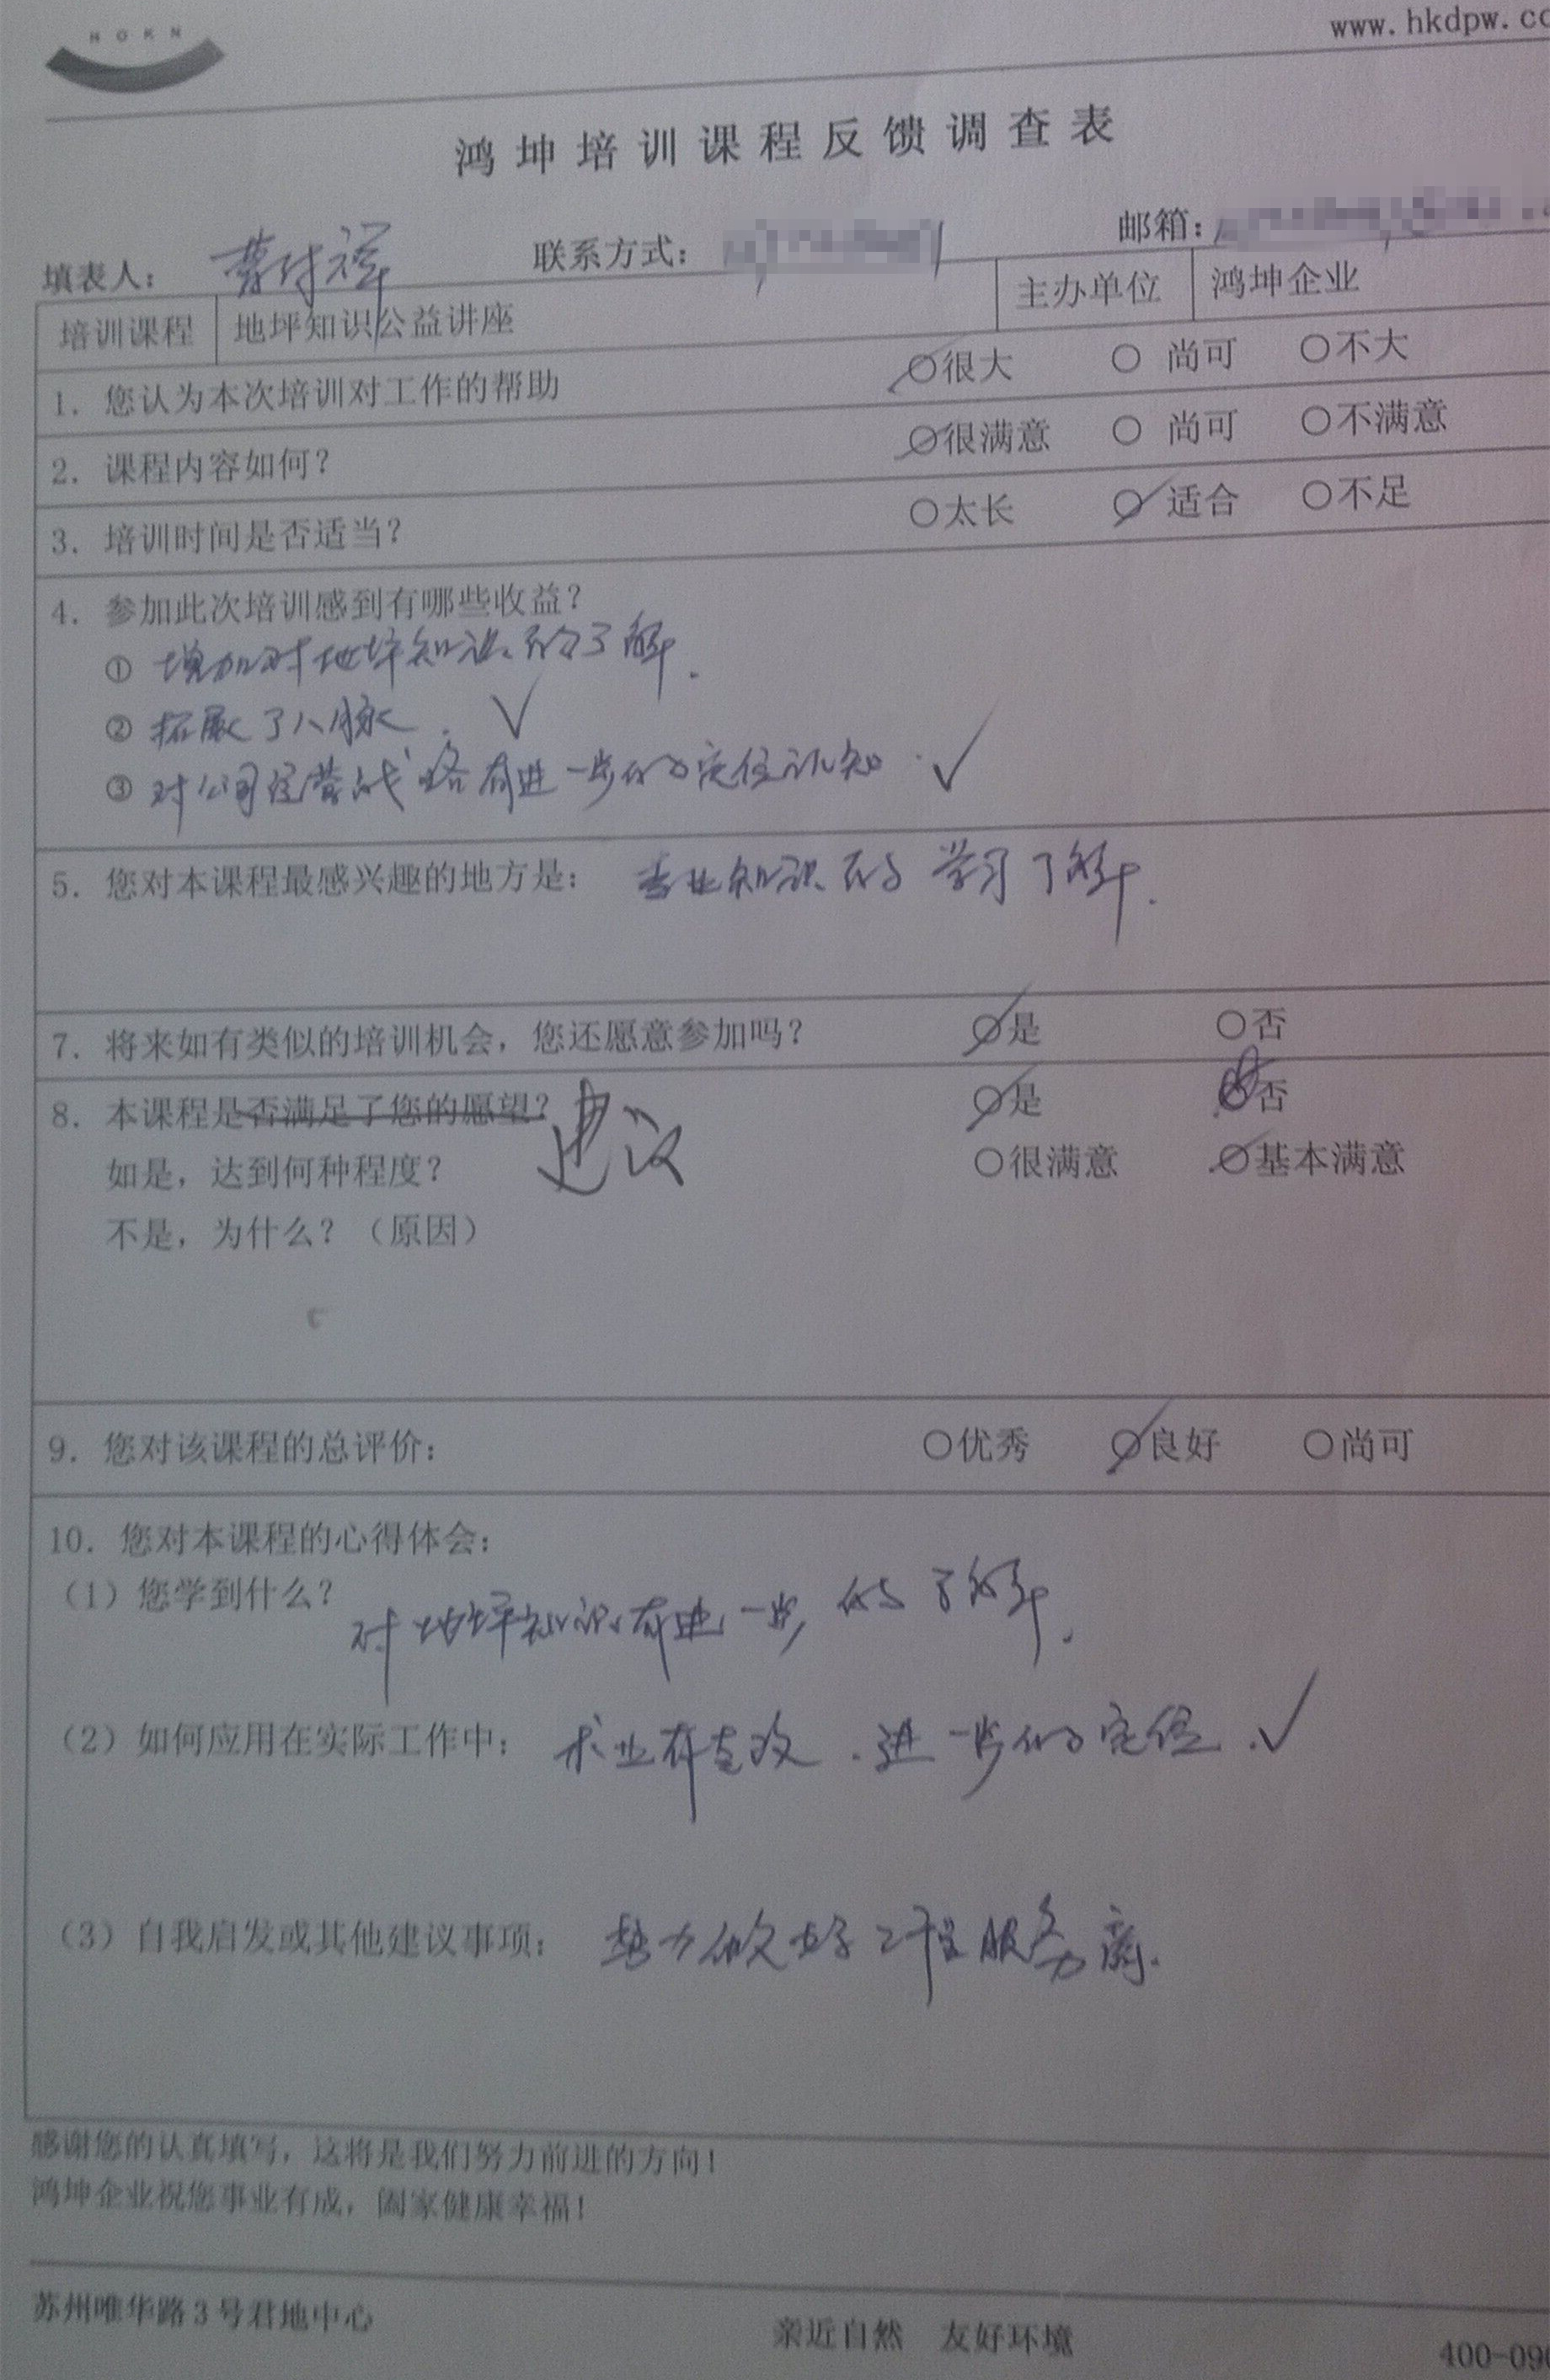 HGKN
www.hkdpw.co
鸿坤培训课程反馈调查表
填表人： 曹付祥 联系方式： 邮箱：
培训课程 地坪知识公益讲座 主办单位 鸿坤企业
1. 您认为本次培训对工作的帮助 ○很大 ○ 尚可 ○不大
2. 课程内容如何？ ○很满意 ○ 尚可 ○不满意
3. 培训时间是否适当？ ○太长 ○ 适合 ○不足
4. 参加此次培训感到有哪些收益？
① 增加对地坪知识的了解.
② 拓展了人脉. ✓
③ 对公司经营战略有进一步的定位认知. ✓
5. 您对本课程最感兴趣的地方是： 专业知识的学习了解.
7. 将来如有类似的培训机会，您还愿意参加吗？ ○是 ○否
8. 本课程是否满足了您的愿望？ 建议 ○是 ○否
如是，达到何种程度？ ○很满意 ○基本满意
不是，为什么？（原因）
9. 您对该课程的总评价： ○优秀 ○良好 ○尚可
10. 您对本课程的心得体会：
（1）您学到什么？ 对地坪知识有进一步的了解.
（2）如何应用在实际工作中： 术业有专攻.进一步的定位.✓
（3）自我启发或其他建议事项： 努力做好工程服务商.
感谢您的认真填写，这将是我们努力前进的方向！
鸿坤企业祝您事业有成，阖家健康幸福！
苏州唯华路3号君地中心 亲近自然 友好环境 400-090